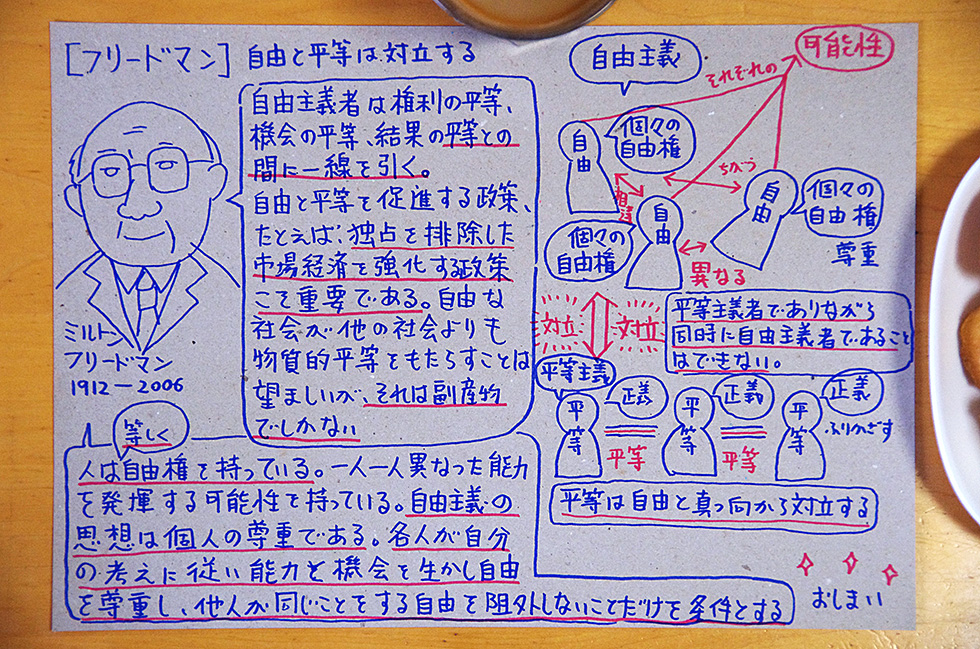 [フリードマン] 自由と平等は対立する
自由主義者は権利の平等、
機会の平等、結果の平等との
間に一線を引く。
自由と平等を促進する政策、
たとえば、独占を排除した
市場経済を強化する政策
こそ重要である。自由な
社会が他の社会よりも
物質的平等をもたらすことは
望ましいが、それは副産物
でしかない
ミルトン
フリードマン
1912−2006
等しく
人は自由権を持っている。一人一人異なった能力
を発揮する可能性を持っている。自由主義の
思想は個人の尊重である。各人が自分
の考えに従い能力と機会を生かし自由
を尊重し、他人が同じことをする自由を阻外しないことだけを条件とする
自由主義
可能性
それぞれの
自由
個々の
自由権
相違
ちがう
自由
個々の
自由権
自由
個々の
自由権
尊重
異なる
対立
対立
平等主義者でありながら
同時に自由主義者であること
はできない。
平等主義
平等
正義
平等
平等
正義
平等
平等
正義
ふりかざす
平等は自由と真っ向から対立する
おしまい